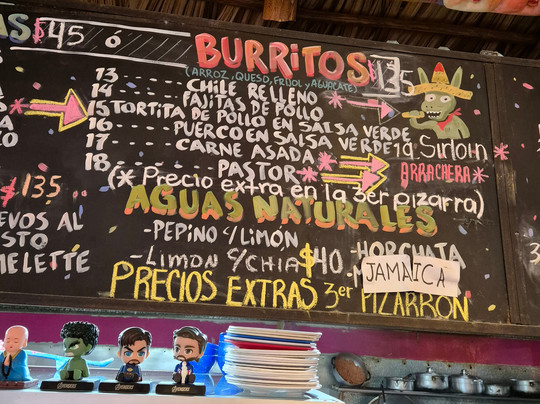 AS $45 ó
BURRITOS $135
(ARROZ, QUESO, FRIJOL y AGUACATE)
13 ---- CHILE RELLENO
14 ---- FAJITAS DE POLLO
15 TORTITA DE POLLO EN SALSA VERDE
16 ---- PUERCO EN SALSA VERDE
17 ---- CARNE ASADA
19 Sirloin
ARRACHERA
18 ---- PASTOR
(* Precio extra en la 3er pizarra)
135
EVOS AL
STO
MELETTE
AGUAS NATURALES
-PEPINO C/LIMÓN
-LIMON C/CHIA $40
-HORCHATA
JAMAICA
PRECIOS EXTRAS 3er PIZARRÓN
AVENGERS
AVENGERS
AVENGERS